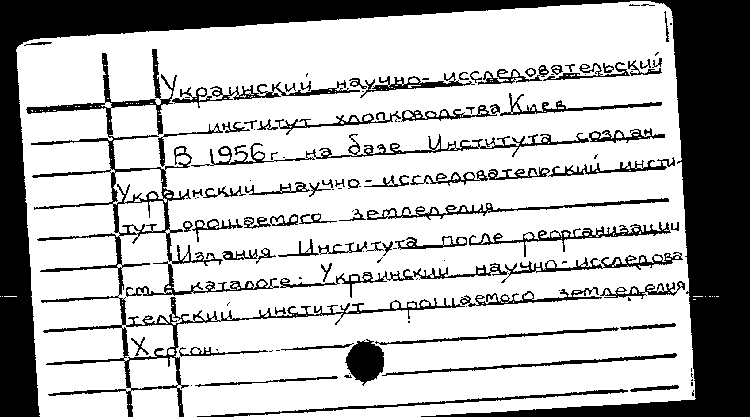 Украинский научно-исследовательский
институт хлопководства Киев
В 1956 г. на базе Института создан
Украинский научно-исследовательский инсти-
тут орошаемого земледелия.
Издания Института после реорганизации
см. в каталоге: Украинский научно-исследова-
тельский институт орошаемого земледелия.
Херсон.